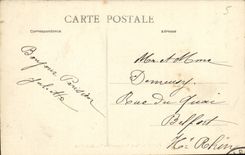 5
CARTE POSTALE
Correspondance
Adresse
Mr et Mme
Demeusy
Rue du Quai
Belfort
Ht Rhin
Bonjour Parisien